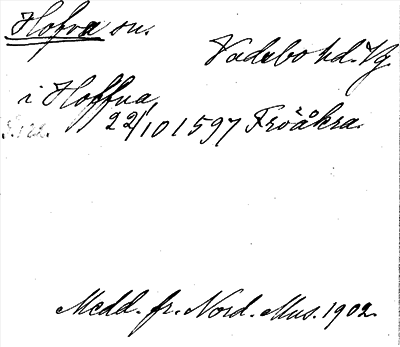 Hofva sn.
Vadsbo hd. Vg
i Hoffua
22/10 1597 Fröåkra.
Medd. fr. Nord. Mus. 1902